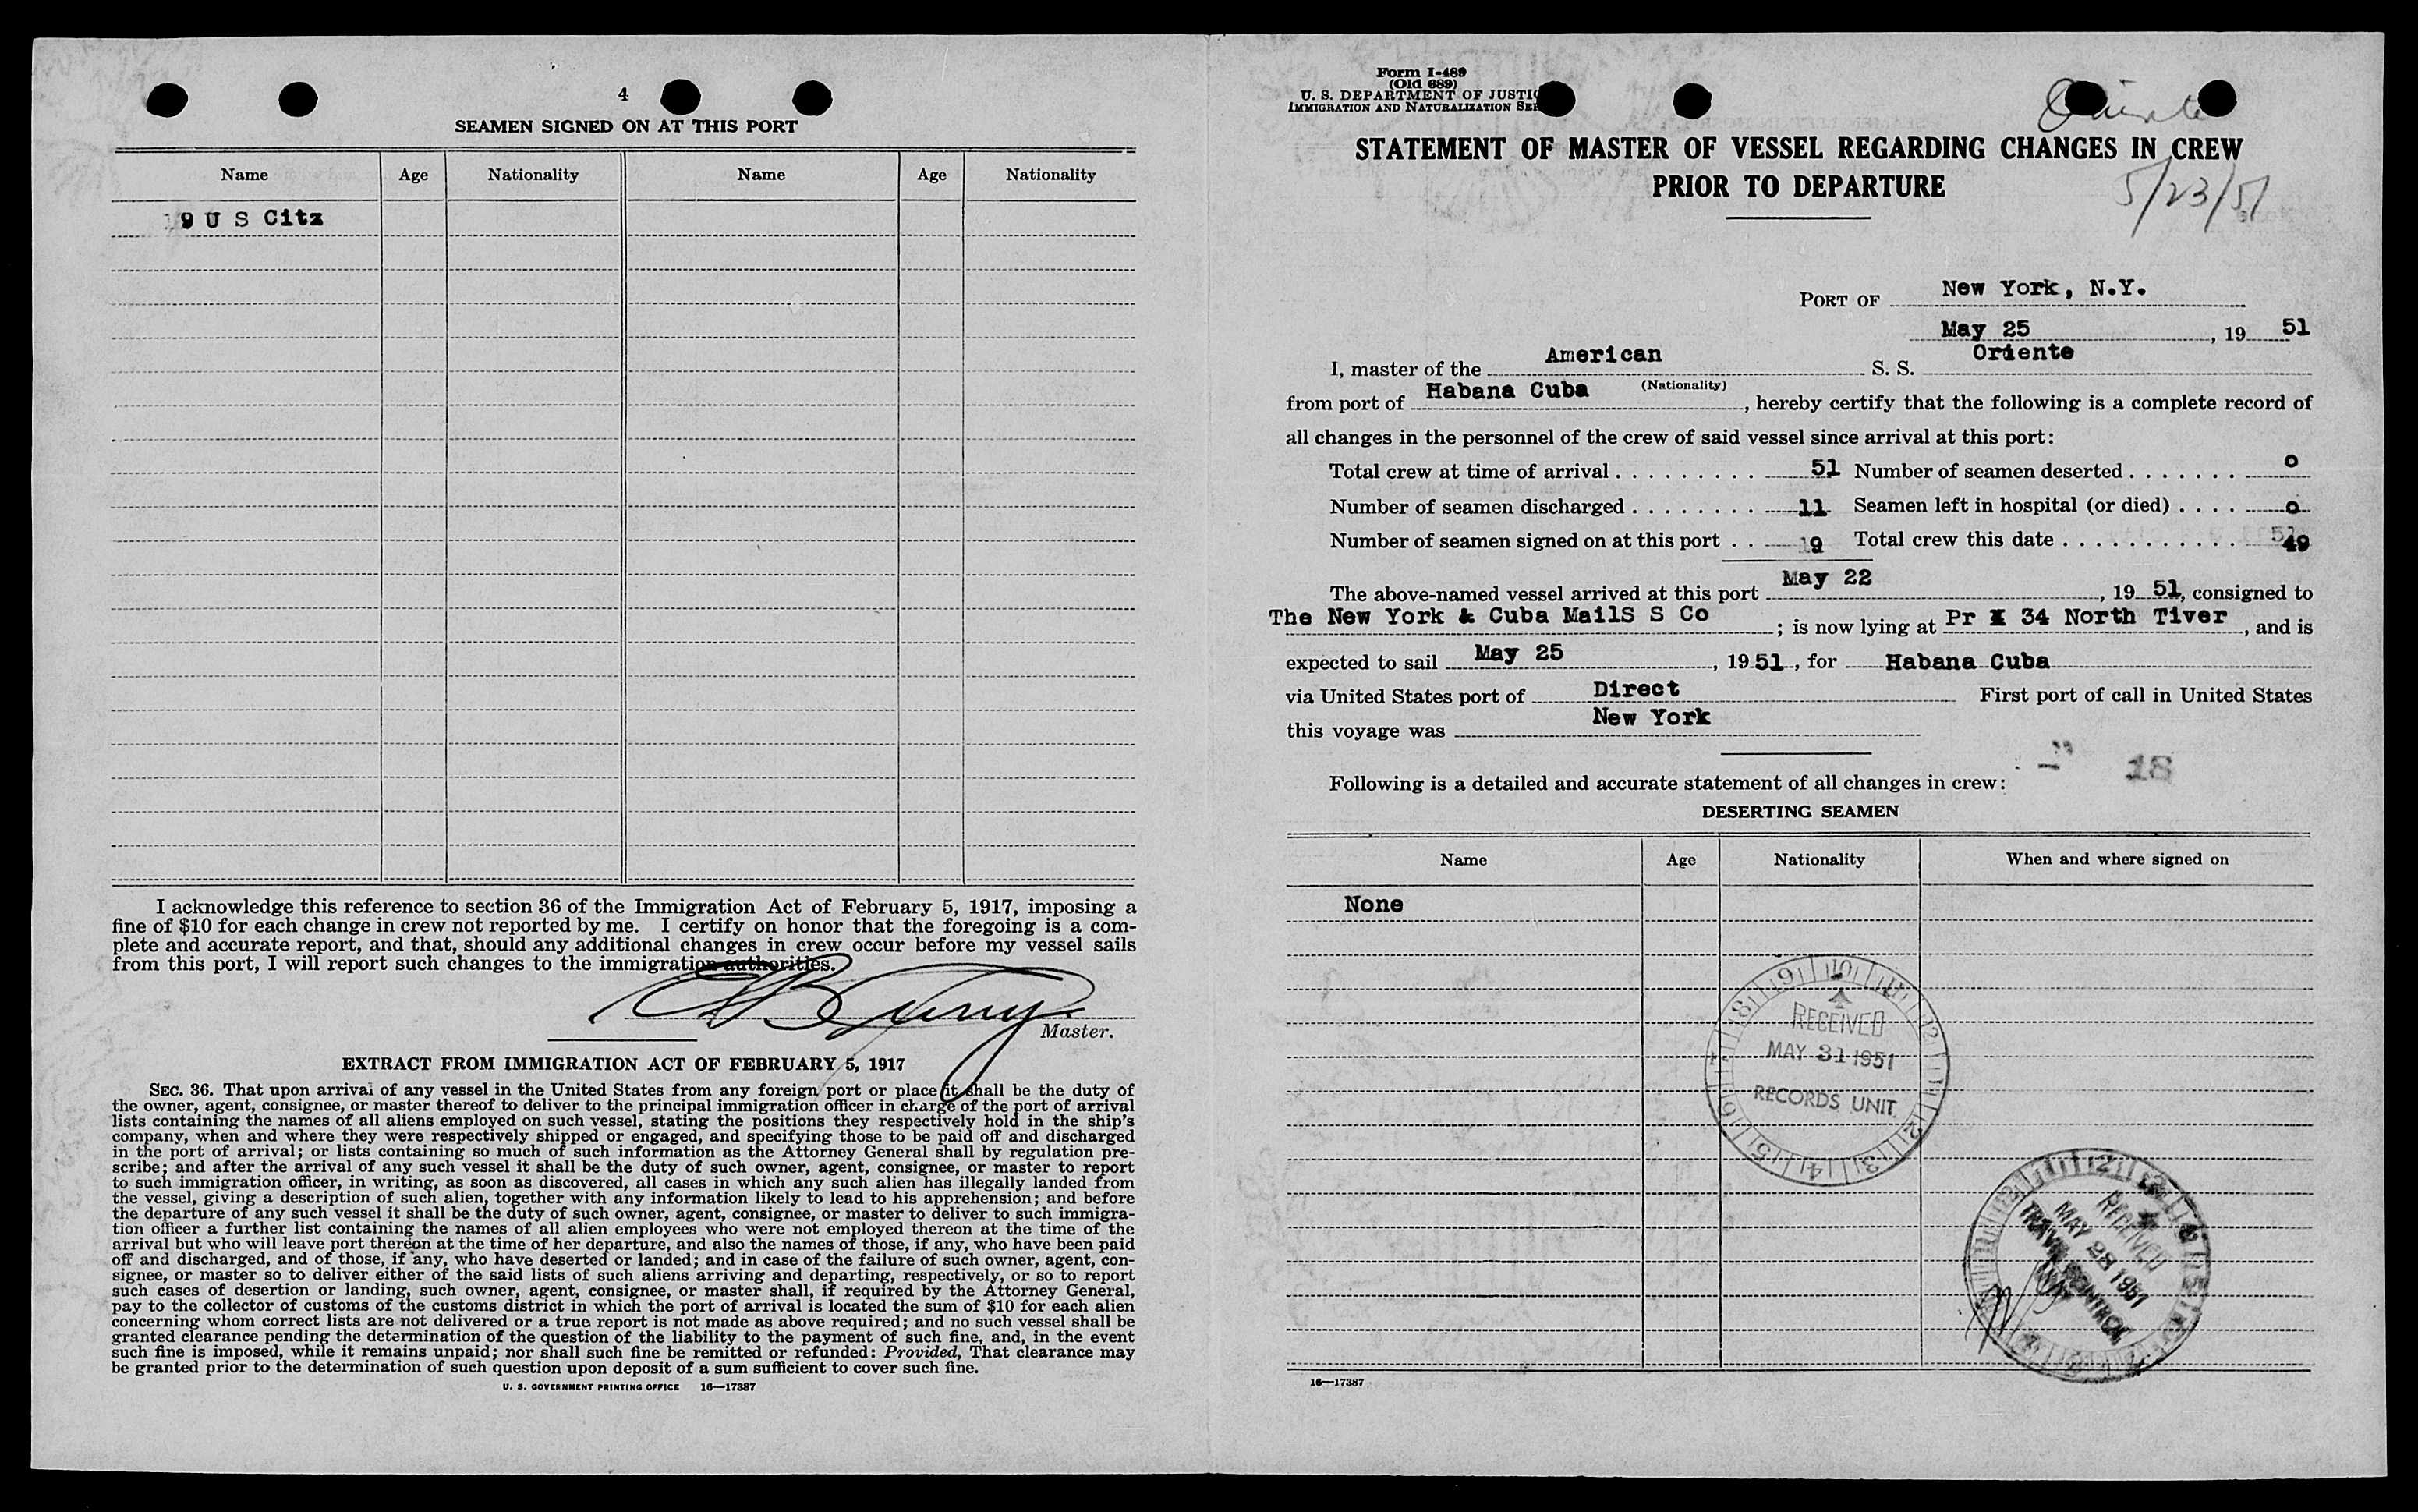 4
SEAMEN SIGNED ON AT THIS PORT
Name Age Nationality Name Age Nationality
9 U S Citz
I acknowledge this reference to section 36 of the Immigration Act of February 5, 1917, imposing a
fine of $10 for each change in crew not reported by me. I certify on honor that the foregoing is a com-
plete and accurate report, and that, should any additional changes in crew occur before my vessel sails
from this port, I will report such changes to the immigration authorities.
Master.
EXTRACT FROM IMMIGRATION ACT OF FEBRUARY 5, 1917
SEC. 36. That upon arrival of any vessel in the United States from any foreign port or place it shall be the duty of
the owner, agent, consignee, or master thereof to deliver to the principal immigration officer in charge of the port of arrival
lists containing the names of all aliens employed on such vessel, stating the positions they respectively hold in the ship's
company, when and where they were respectively shipped or engaged, and specifying those to be paid off and discharged
in the port of arrival; or lists containing so much of such information as the Attorney General shall by regulation pre-
scribe; and after the arrival of any such vessel it shall be the duty of such owner, agent, consignee, or master to report
to such immigration officer, in writing, as soon as discovered, all cases in which any such alien has illegally landed from
the vessel, giving a description of such alien, together with any information likely to lead to his apprehension; and before
the departure of any such vessel it shall be the duty of such owner, agent, consignee, or master to deliver to such immigra-
tion officer a further list containing the names of all alien employees who were not employed thereon at the time of the
arrival but who will leave port thereon at the time of her departure, and also the names of those, if any, who have been paid
off and discharged, and of those, if any, who have deserted or landed; and in case of the failure of such owner, agent, con-
signee, or master so to deliver either of the said lists of such aliens arriving and departing, respectively, or so to report
such cases of desertion or landing, such owner, agent, consignee, or master shall, if required by the Attorney General,
pay to the collector of customs of the customs district in which the port of arrival is located the sum of $10 for each alien
concerning whom correct lists are not delivered or a true report is not made as above required; and no such vessel shall be
granted clearance pending the determination of the question of the liability to the payment of such fine, and, in the event
such fine is imposed, while it remains unpaid; nor shall such fine be remitted or refunded: Provided, That clearance may
be granted prior to the determination of such question upon deposit of a sum sufficient to cover such fine.
U. S. GOVERNMENT PRINTING OFFICE 16—17387
Form I-489
(Old 689)
U. S. DEPARTMENT OF JUSTIC
IMMIGRATION AND NATURALIZATION SER
Oriente
STATEMENT OF MASTER OF VESSEL REGARDING CHANGES IN CREW
PRIOR TO DEPARTURE
5/23/51
PORT OF New York, N.Y.
May 25, 19 51
I, master of the American S. S. Oriente
(Nationality)
from port of Habana Cuba, hereby certify that the following is a complete record of
all changes in the personnel of the crew of said vessel since arrival at this port:
Total crew at time of arrival 51 Number of seamen deserted 0
Number of seamen discharged 11 Seamen left in hospital (or died) 0
Number of seamen signed on at this port 9 Total crew this date 49
The above-named vessel arrived at this port May 22, 19 51, consigned to
The New York & Cuba MailS S Co; is now lying at Pr X 34 North Tiver, and is
expected to sail May 25, 19 51, for Habana Cuba
via United States port of Direct First port of call in United States
this voyage was New York
18
Following is a detailed and accurate statement of all changes in crew:
DESERTING SEAMEN
Name Age Nationality When and where signed on
None
RECEIVED
MAY 31 1951
RECORDS UNIT
RECEIVED
MAY 28 1951
TRAVEL CONTROL
16—17387